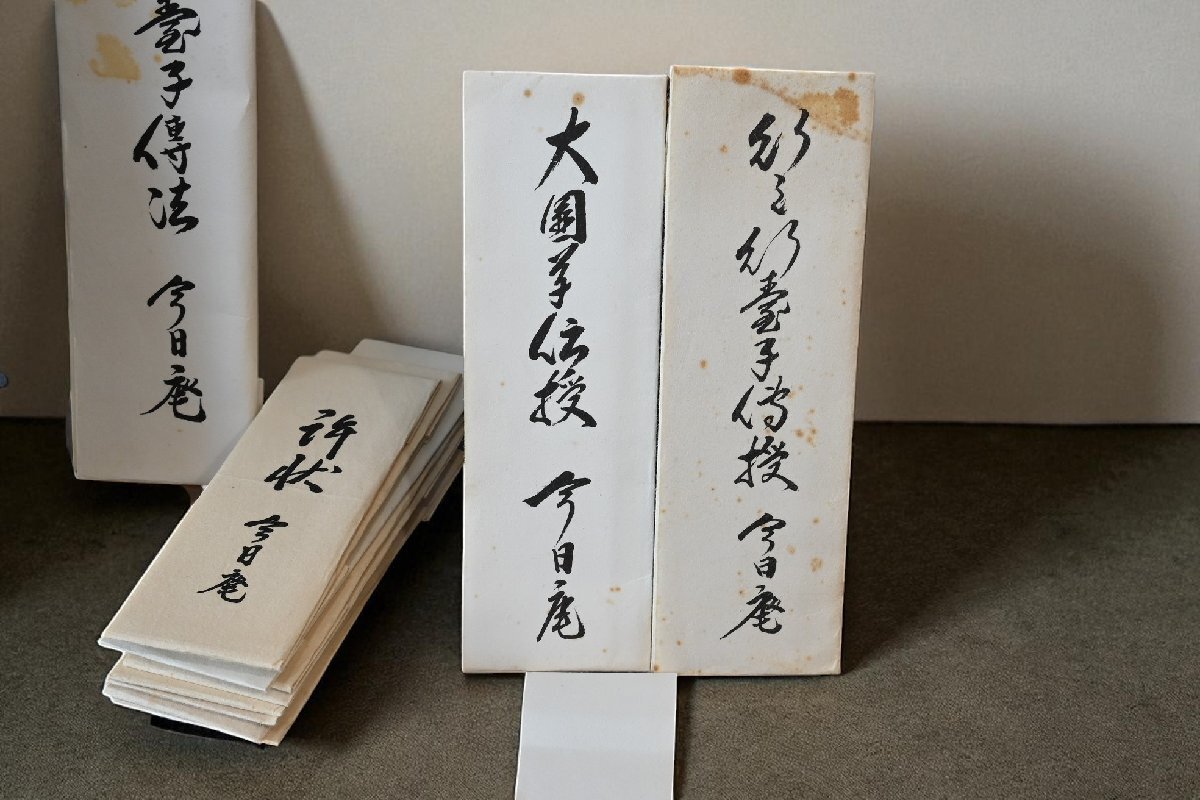 行之行臺子傳授 今日庵
大圓草伝授 今日庵
許状 今日庵
臺子傳法 今日庵